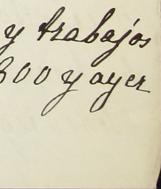 y trabajos
300 y ayer